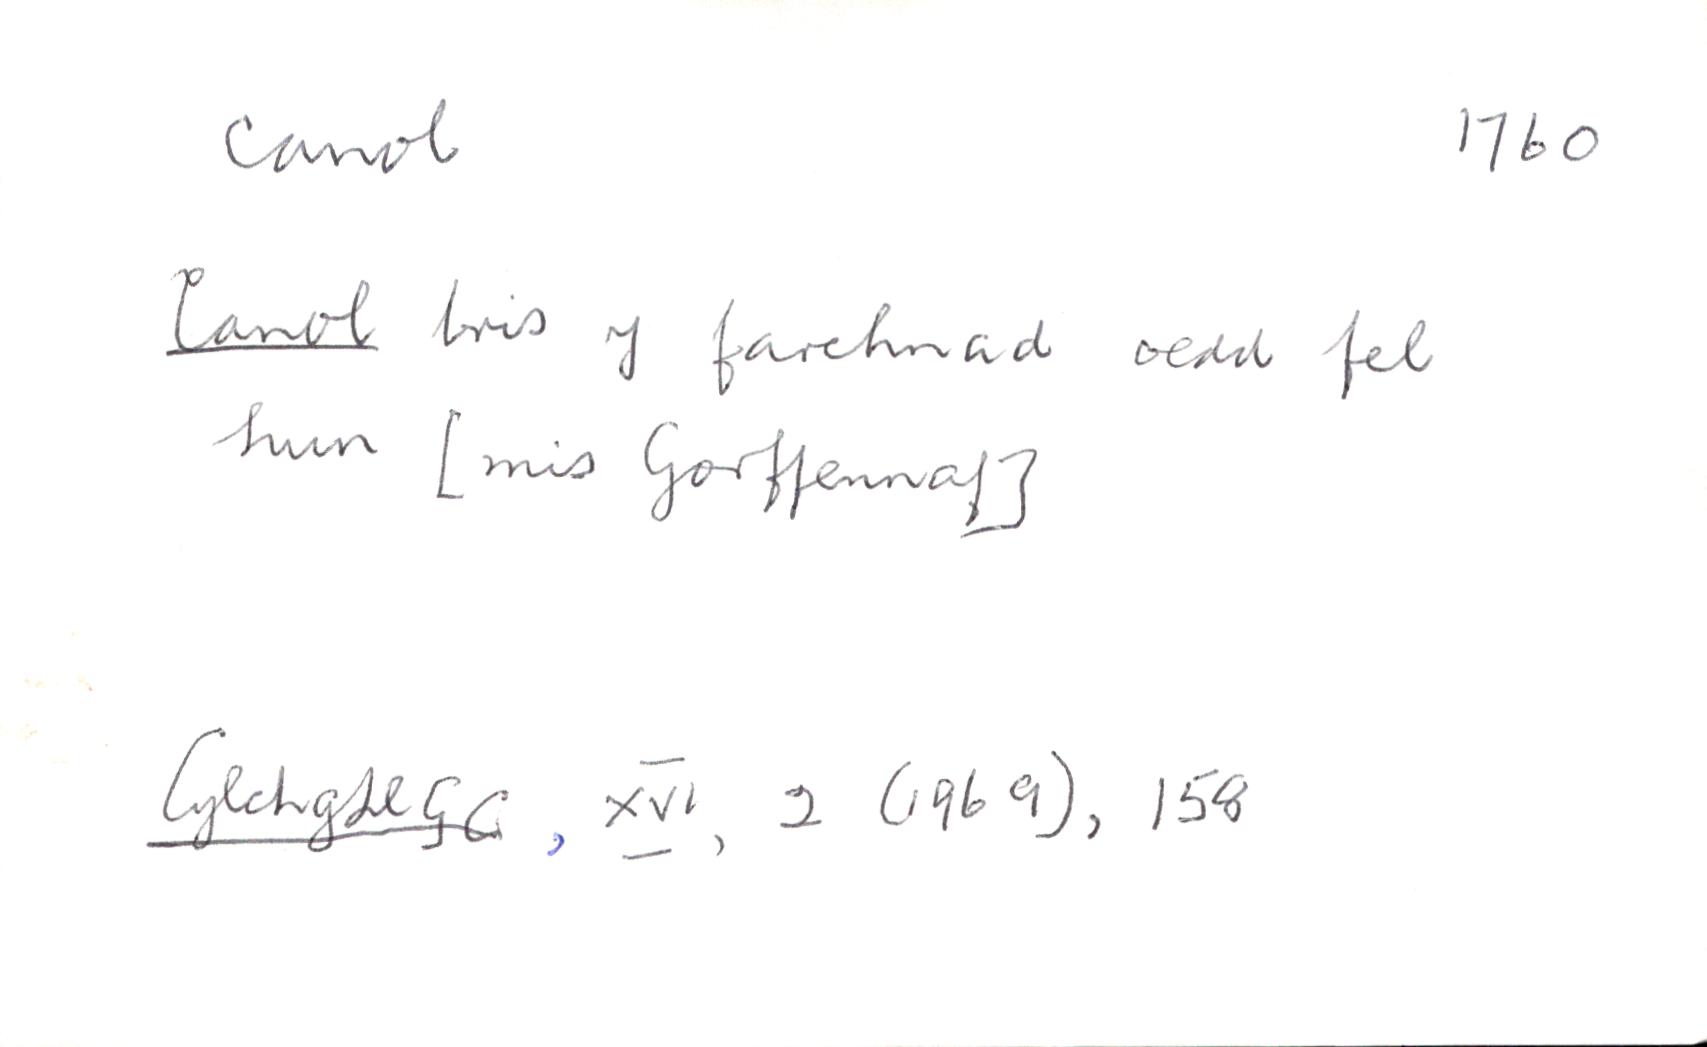 canol 1760
Canol bris y farchnad oedd fel
hun [mis Gorffennaf]
CylchgLlGC, XVI, 2 (1969), 158